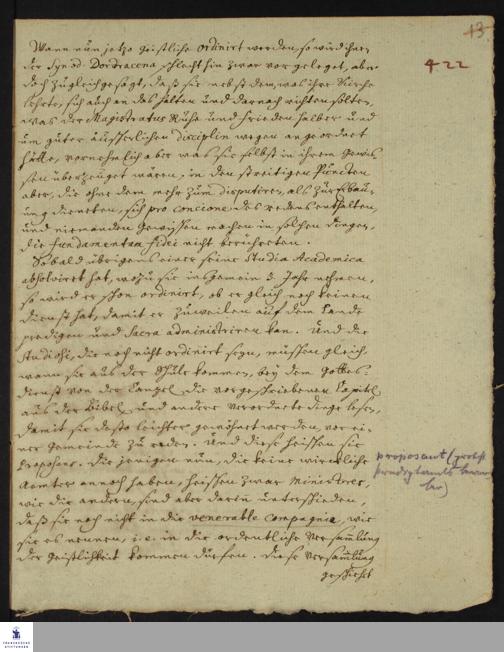 13
422
Wann nun jetzo Geistliche ordinirt werden, so wird ihnen
der Synod. Dordracena schlechthin zwar vorgeleget, aber
doch zugleich gesagt, daß sie nebst dem, was ihre Kirche
lehrte, sich auch an das halten und darnach richten solten,
was der Magistratus Ruhe und Friedens halber und
um guter äusserlichen disciplin wegen angeordnet
hätte, vornehmlich aber was sie selbst in ihrem Gewis-
sen überzeuget wären, in den streitigen Puncten
aber, die ohne dem mehr zum disputiren, als zur Erbau-
ung dieneten, sich pro concione des redens enthalten,
und niemanden Gewissen machen in solchen Dingen,
die fundamentum fidei nicht berühreten.
Sobald übrigens einer seine Studia Academica
absolviret hat, wozu sie insgemein 3. Jahr nehmen,
so wird er schon ordinirt, ob er gleich noch keinen
Dienst hat, damit er zuweilen auf dem Lande
predigen und Sacra administriren kan. Und die
Studiosi, die noch nicht ordinirt seyn, müssen gleich
wann sie aus der Schule kommen, bey dem Gottes-
dienst von der Cantzel die vorgeschriebenen Capitel
aus der Bibel und andere verordnete Dinge lesen,
damit sie desto leichter gewöhnet werden, vor ei-
ner Gemeinde zu reden. Und diese heissen sie
Proposans. Die jenigen nun, die keine wirckliche
Aemter annoch haben, heissen zwar Ministres,
wie die andern, sind aber darin unterschieden,
daß sie noch nicht in die venerable compagnie, wie
sie es nennen, i. e. in die ordentliche Versamlung
der Geistlichkeit kommen dürfen. Diese Versamlung
geschieht
proposant (